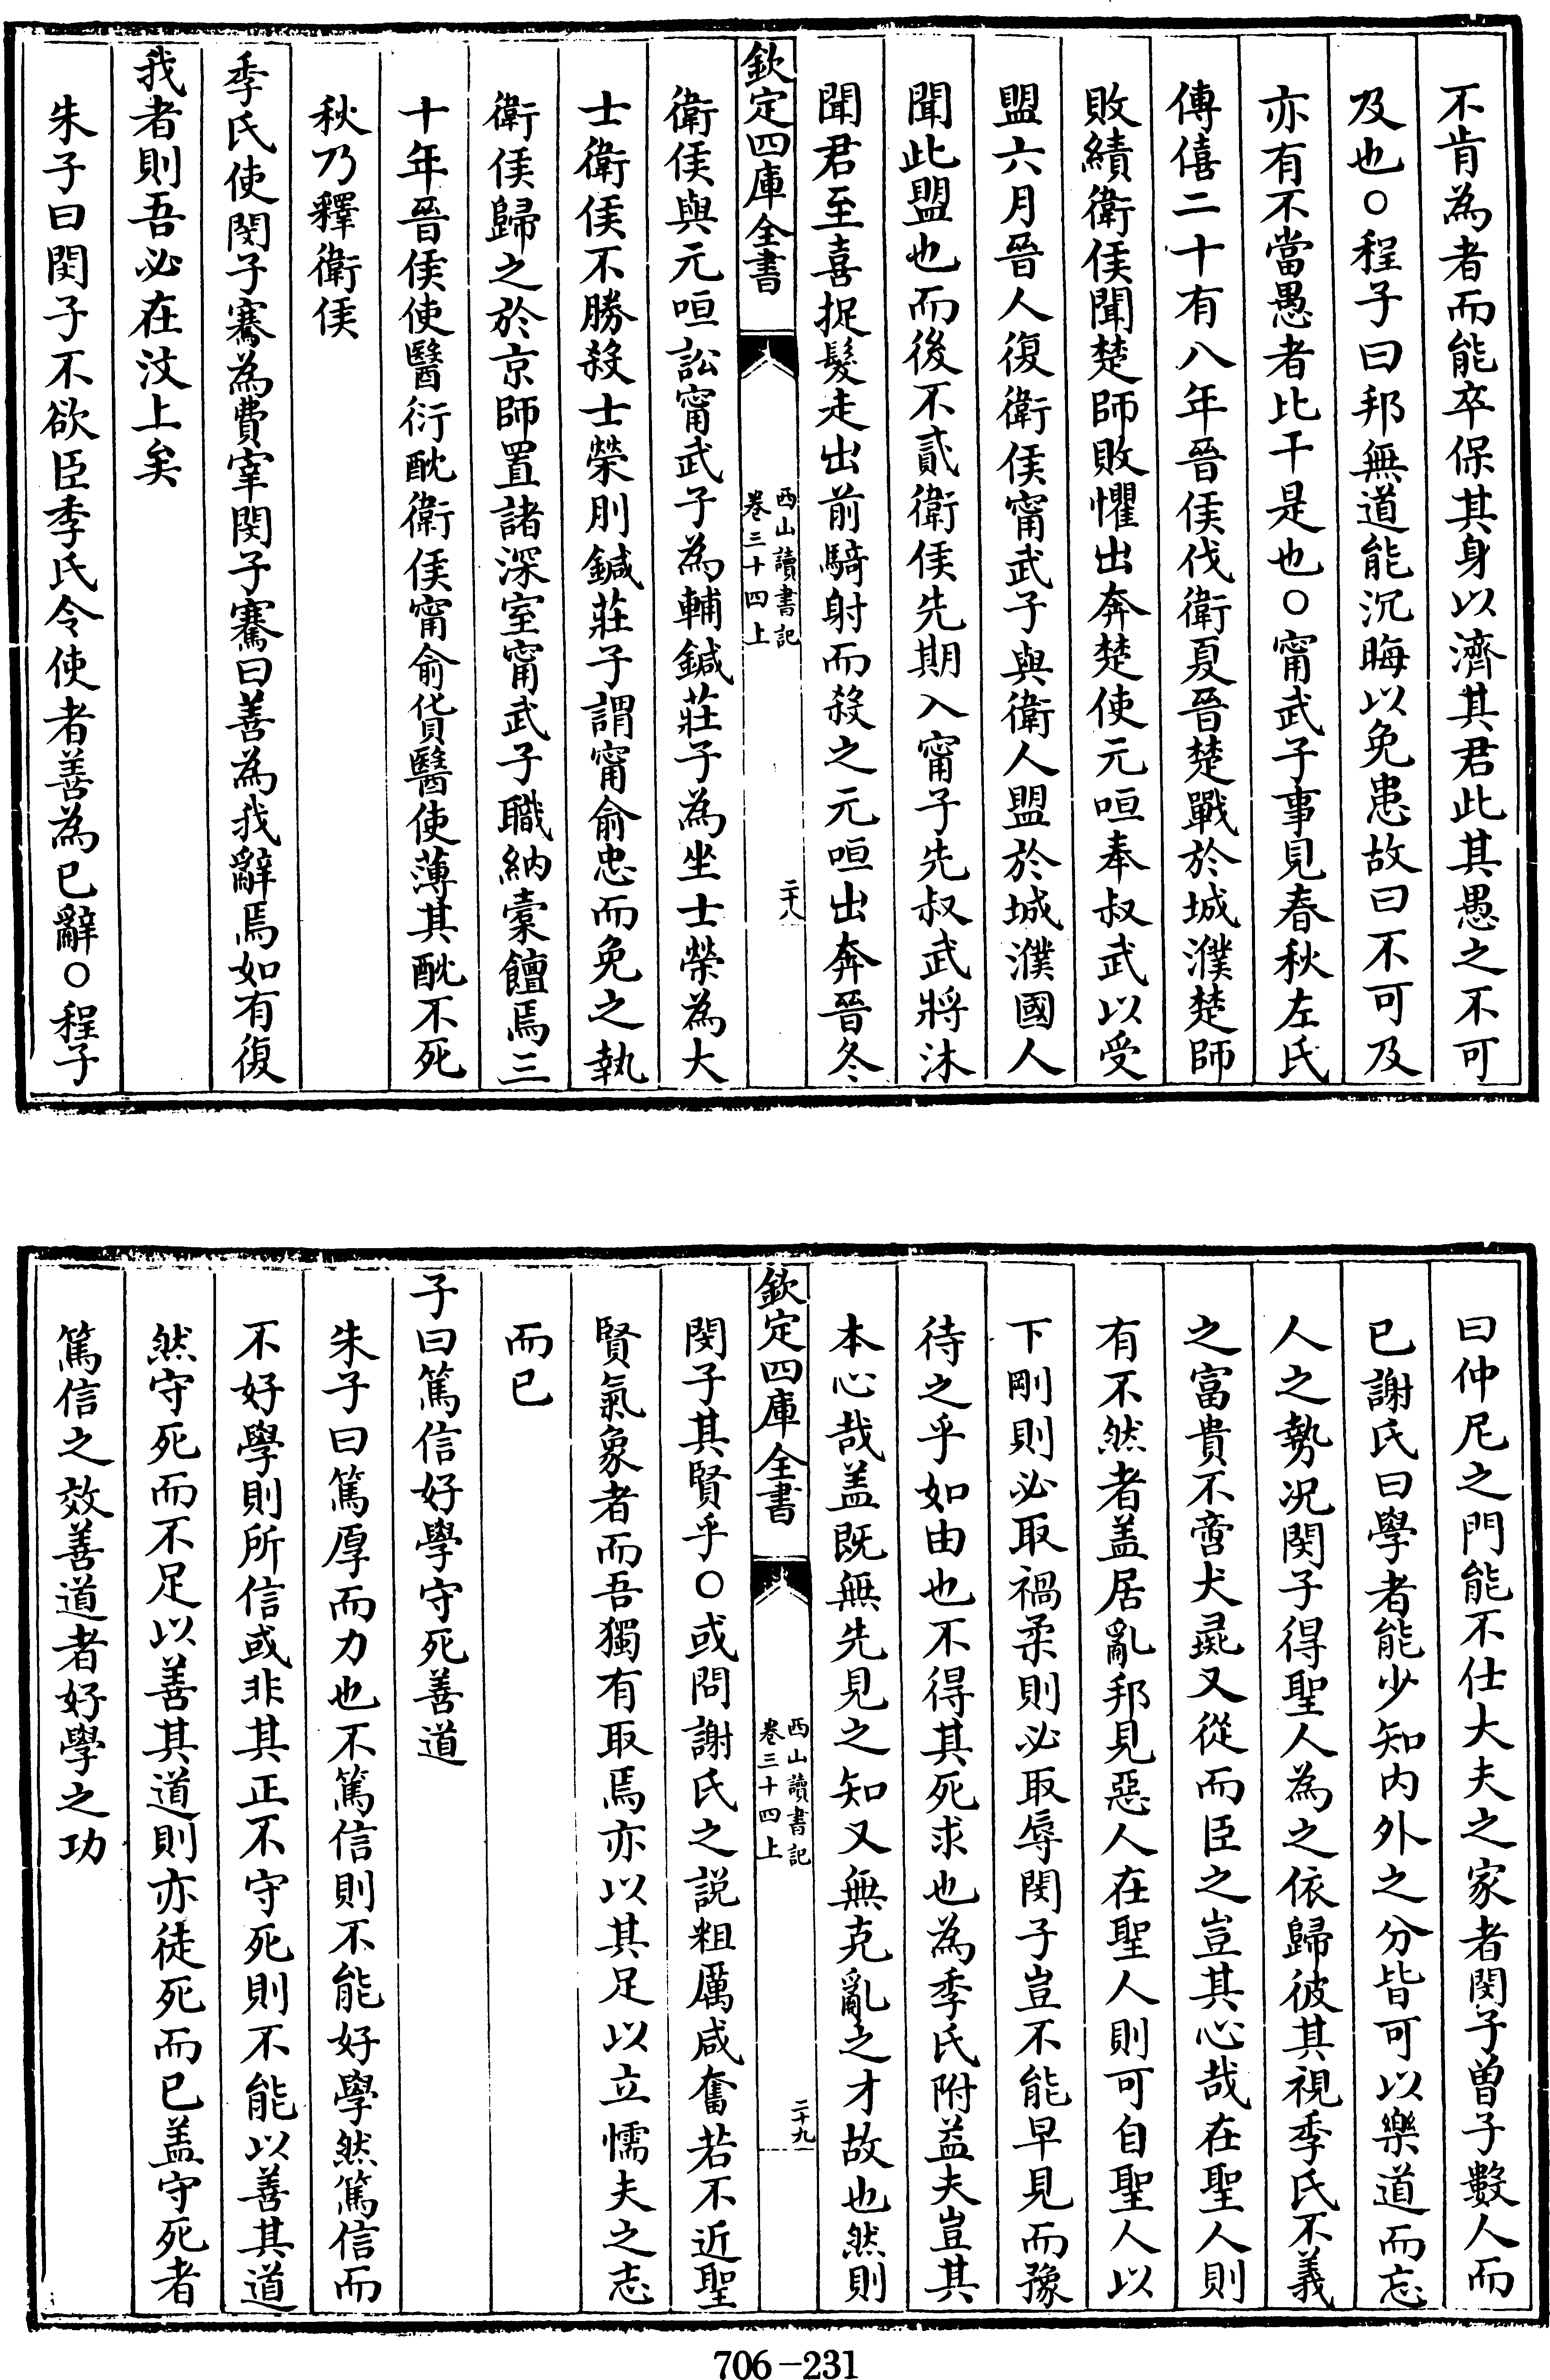 不肯為者而能卒保其身以濟其君此其愚之不可
及也○程子曰邦無道能沉晦以免患故曰不可及
亦有不當愚者比干是也○甯武子事見春秋左氏
傳僖二十有八年晉侯伐衛夏晉楚戰於城濮楚師
敗績衛侯聞楚師敗懼出奔楚使元咺奉叔武以受
盟六月晉人復衛侯甯武子與衛人盟於城濮國人
聞此盟也而後不貳衛侯先期入甯子先叔武將沐
聞君至喜捉髮走出前騎射而殺之元咺出奔晉冬
欽定四庫全書
西山讀書記
卷三十四上
二十八
衛侯與元咺訟甯武子為輔鍼莊子為坐士榮為大
士衛侯不勝殺士榮刖鍼莊子謂甯俞忠而免之執
衛侯歸之於京師置諸深室甯武子職納橐饘焉三
十年晉侯使醫衍酖衛侯甯俞貨醫使薄其酖不死
秋乃釋衛侯
季氏使閔子騫為費宰閔子騫曰善為我辭焉如有復
我者則吾必在汶上矣
朱子曰閔子不欲臣季氏令使者善為已辭○程子
曰仲尼之門能不仕大夫之家者閔子曽子數人而
已謝氏曰學者能少知内外之分皆可以樂道而忘
人之勢况閔子得聖人為之依歸彼其視季氏不義
之富貴不啻犬彘又從而臣之豈其心哉在聖人則
有不然者盖居亂邦見惡人在聖人則可自聖人以
下剛則必取禍柔則必取辱閔子豈不能早見而豫
待之乎如由也不得其死求也為季氏附益夫豈其
本心哉盖既無先見之知又無克亂之才故也然則
欽定四庫全書
西山讀書記
卷三十四上
二十九
閔子其賢乎○或問謝氏之説粗厲咸奮若不近聖
賢氣象者而吾獨有取焉亦以其足以立懦夫之志
而已
子曰篤信好學守死善道
朱子曰篤厚而力也不篤信則不能好學然篤信而
不好學則所信或非其正不守死則不能以善其道
然守死而不足以善其道則亦徒死而已盖守死者
篤信之效善道者好學之功
706-231